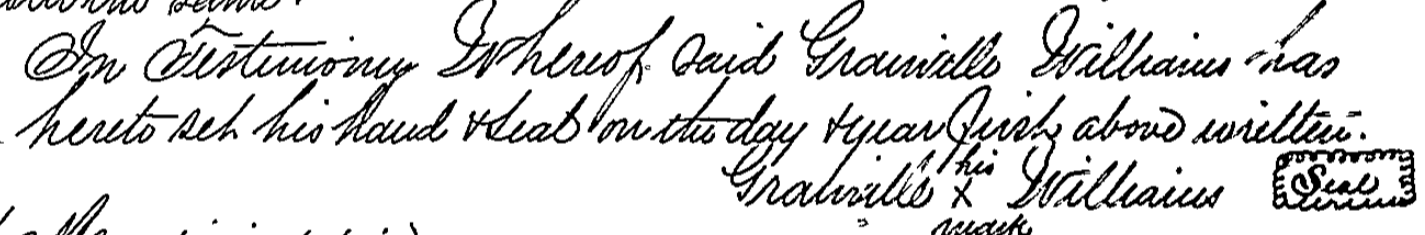 In Testimony Whereof said Granville Williams has
hereto set his hand & seal on the day & year first above written.
his
Granville X Williams Seal
mark